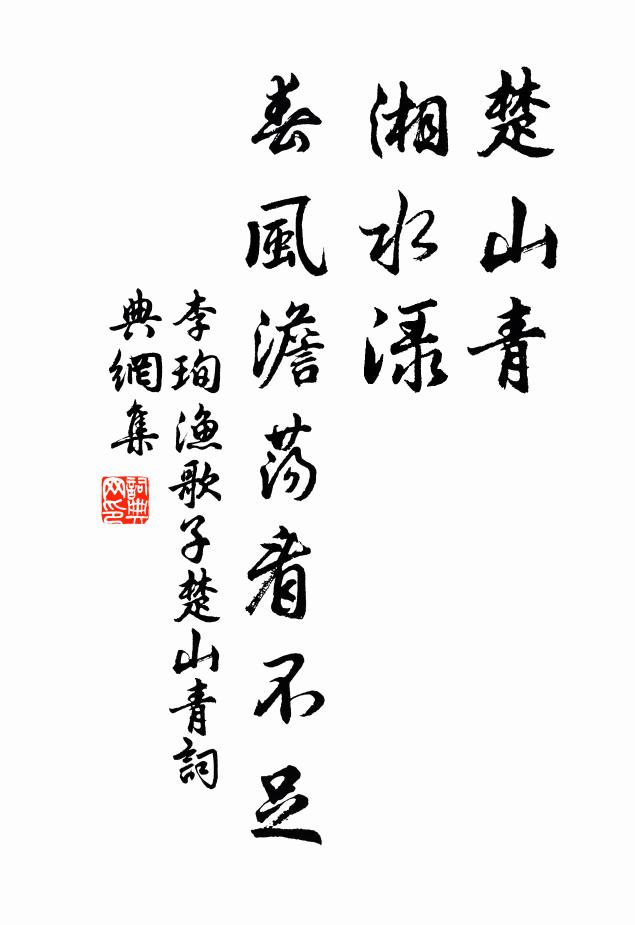 楚山青
湘水渌
春風澹蕩看不足
李珣漁歌子楚山青詞
典網集
詞典网印